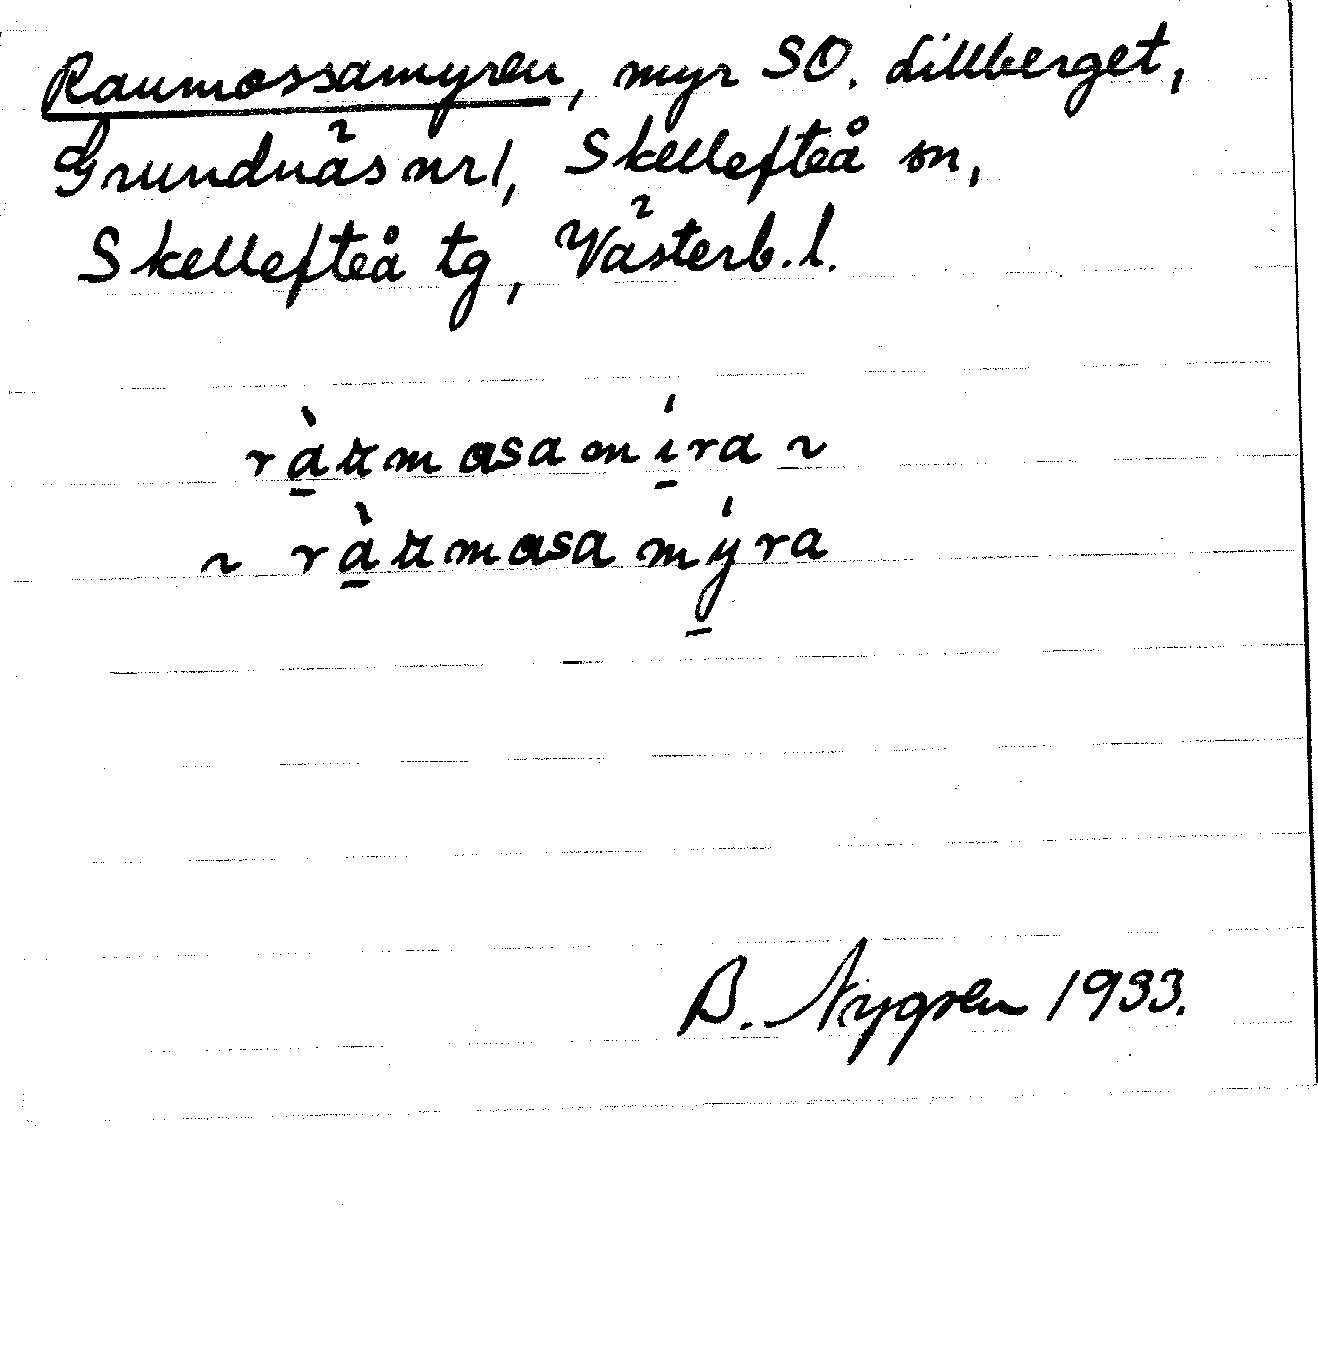 Raumossamyren, myr SO. Lillberget,
Grundnäs nr 1, Skellefteå sn,
Skellefteå tg, Västerb. l.
ràu̵mασamíra ~
~ ràu̵mασamýra
B. Nygren 1933.